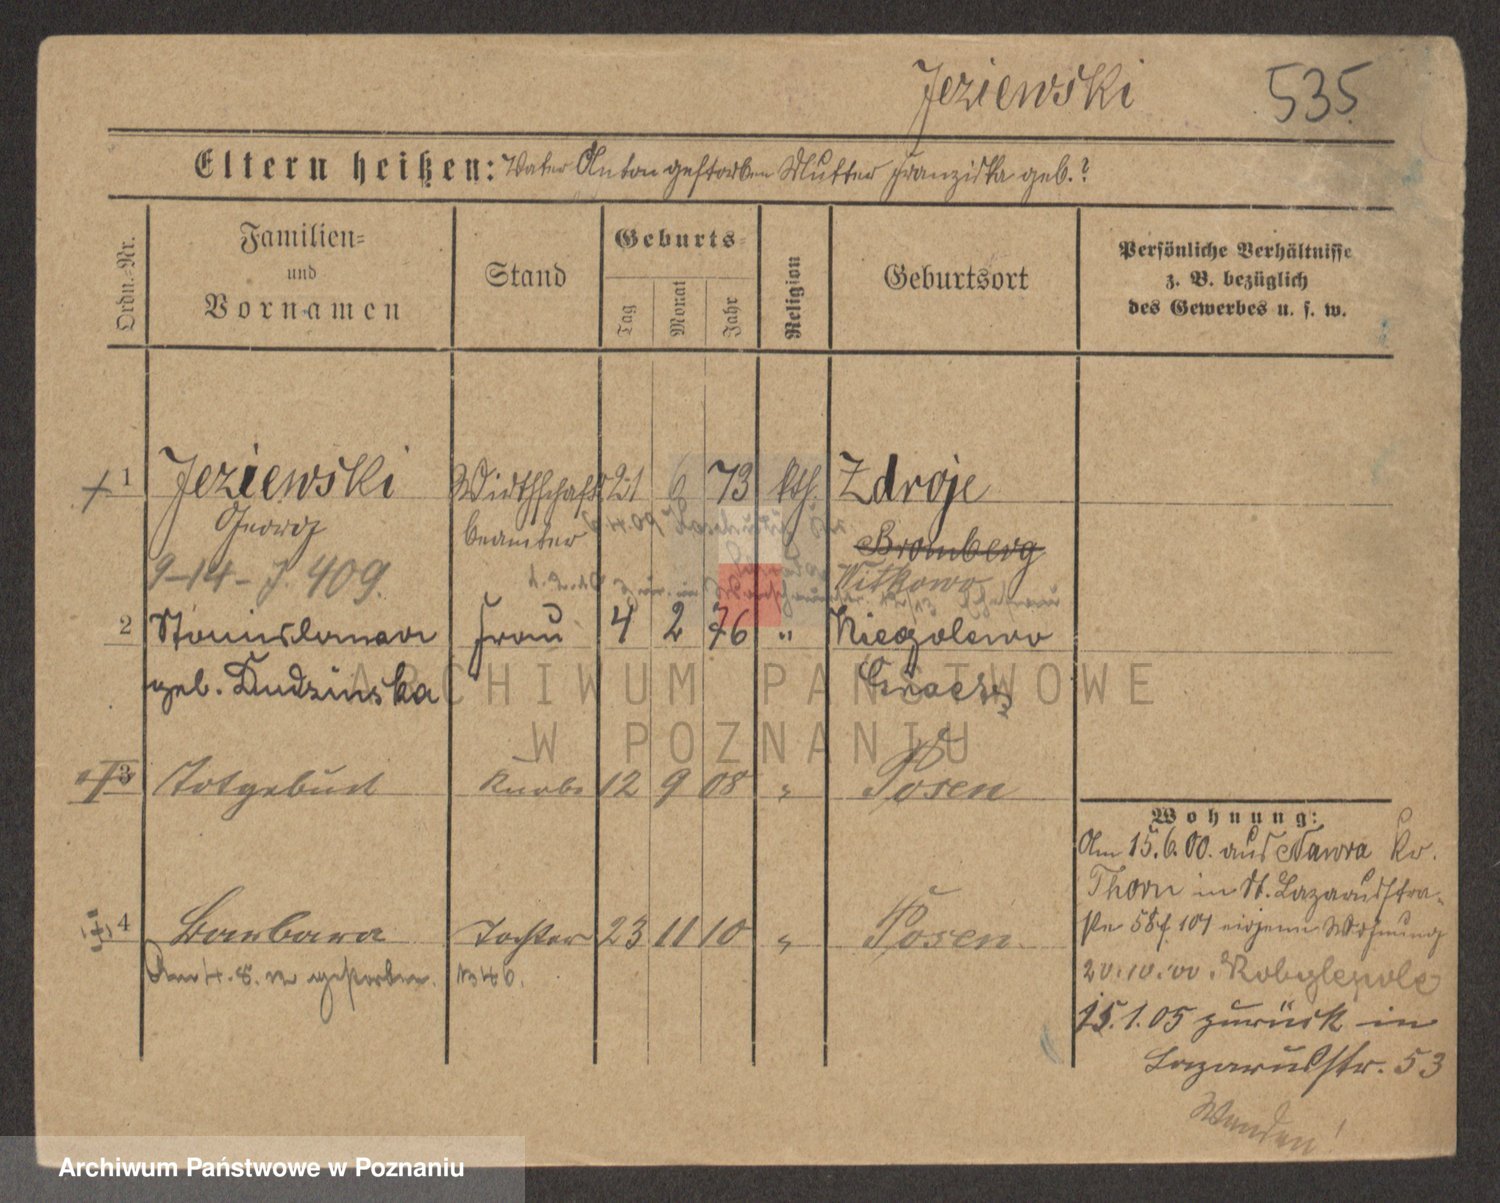 Jeziewski 535
Eltern heißen: Vater Anton gestorben Mutter Franziska geb. ?
Ordn.-Nr.
Familien-
und
Vornamen
Stand
Geburts-
Tag
Monat
Jahr
Religion
Geburtsort
Persönliche Verhältnisse
z. B. bezüglich
des Gewerbes u. s. w.
1 Jeziewski Wirthschafts 21 6 73 kth. Zdroje
Georg beamter Bromberg
9-14- J. 409. Witkowo
2 Stanislawa Frau 4 2 76 " Niegolewo
geb. Dudzinska Graetz
3 Totgeburt Knabe 12 9 08 " Posen
4 Barbara Tochter 23 11 10 " Posen
Am 4. 8. gestorben.
Wohnung:
Am 15.6.00. aus Nawra Kr.
Thorn in St. Lazarusstra-
ße 58 Wohnung
20.10.00. Kobylepole
15.1.05 zurück in
Lazarusstr. 53
Wenden!
ARCHIWUM PAŃSTWOWE
W POZNANIU
Archiwum Państwowe w Poznaniu